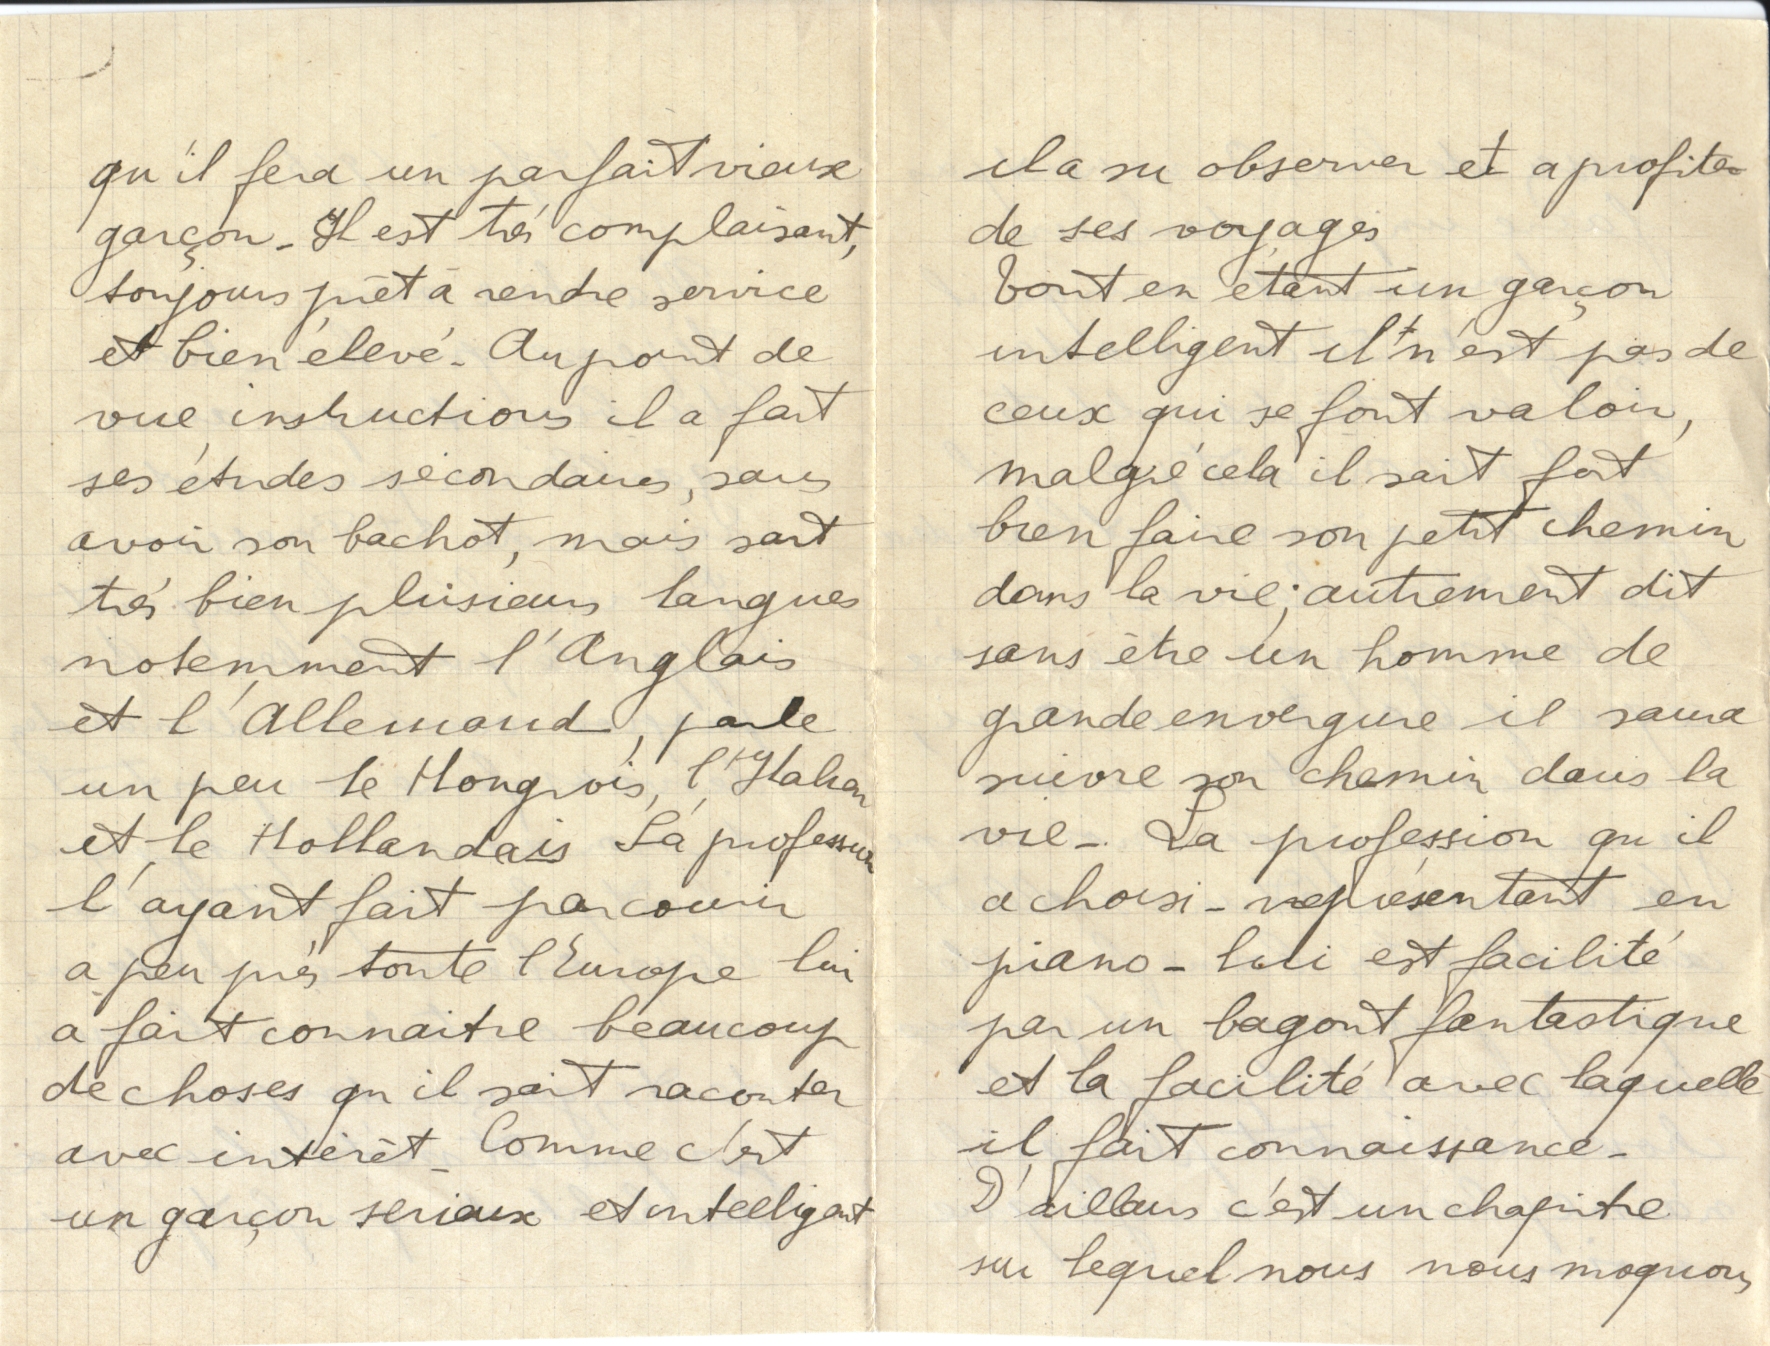 qu'il fera un parfait vieux
garçon_ Il est très complaisant,
toujours prêt à rendre service
et bien élevé_ Au point de
vue instructions il a fait
ses études sécondaires, sans
avoir son bachot, mais sait
très bien plusieurs langues
notemment l'Anglais
et l'Allemand, parle
un peu le Hongrois, l'Italien
et le Hollandais Sa profession
l'ayant fait parcourir
a peu près toute l'Europe lui
a fait connaitre beaucoup
de choses qu'il sait raconter
avec intérêt_ Comme c'est
un garçon serieux et intelligent
il a su observer et a profiter
de ses voyages
Tout en étant un garçon
intelligent il n'est pas de
ceux qui se font valoir,
malgré cela il sait fort
bien faire son petit chemin
dans la vie; autrement dit
sans être un homme de
grande envergure il saura
suivre son chemin dans la
vie_. La profession qu'il
a choisi_représentant en
piano_ lui est facilité
par un bagout fantastique
et la facilité avec laquelle
il fait connaissance_
D'ailleurs c'est un chapitre
sur lequel nous nous moquons